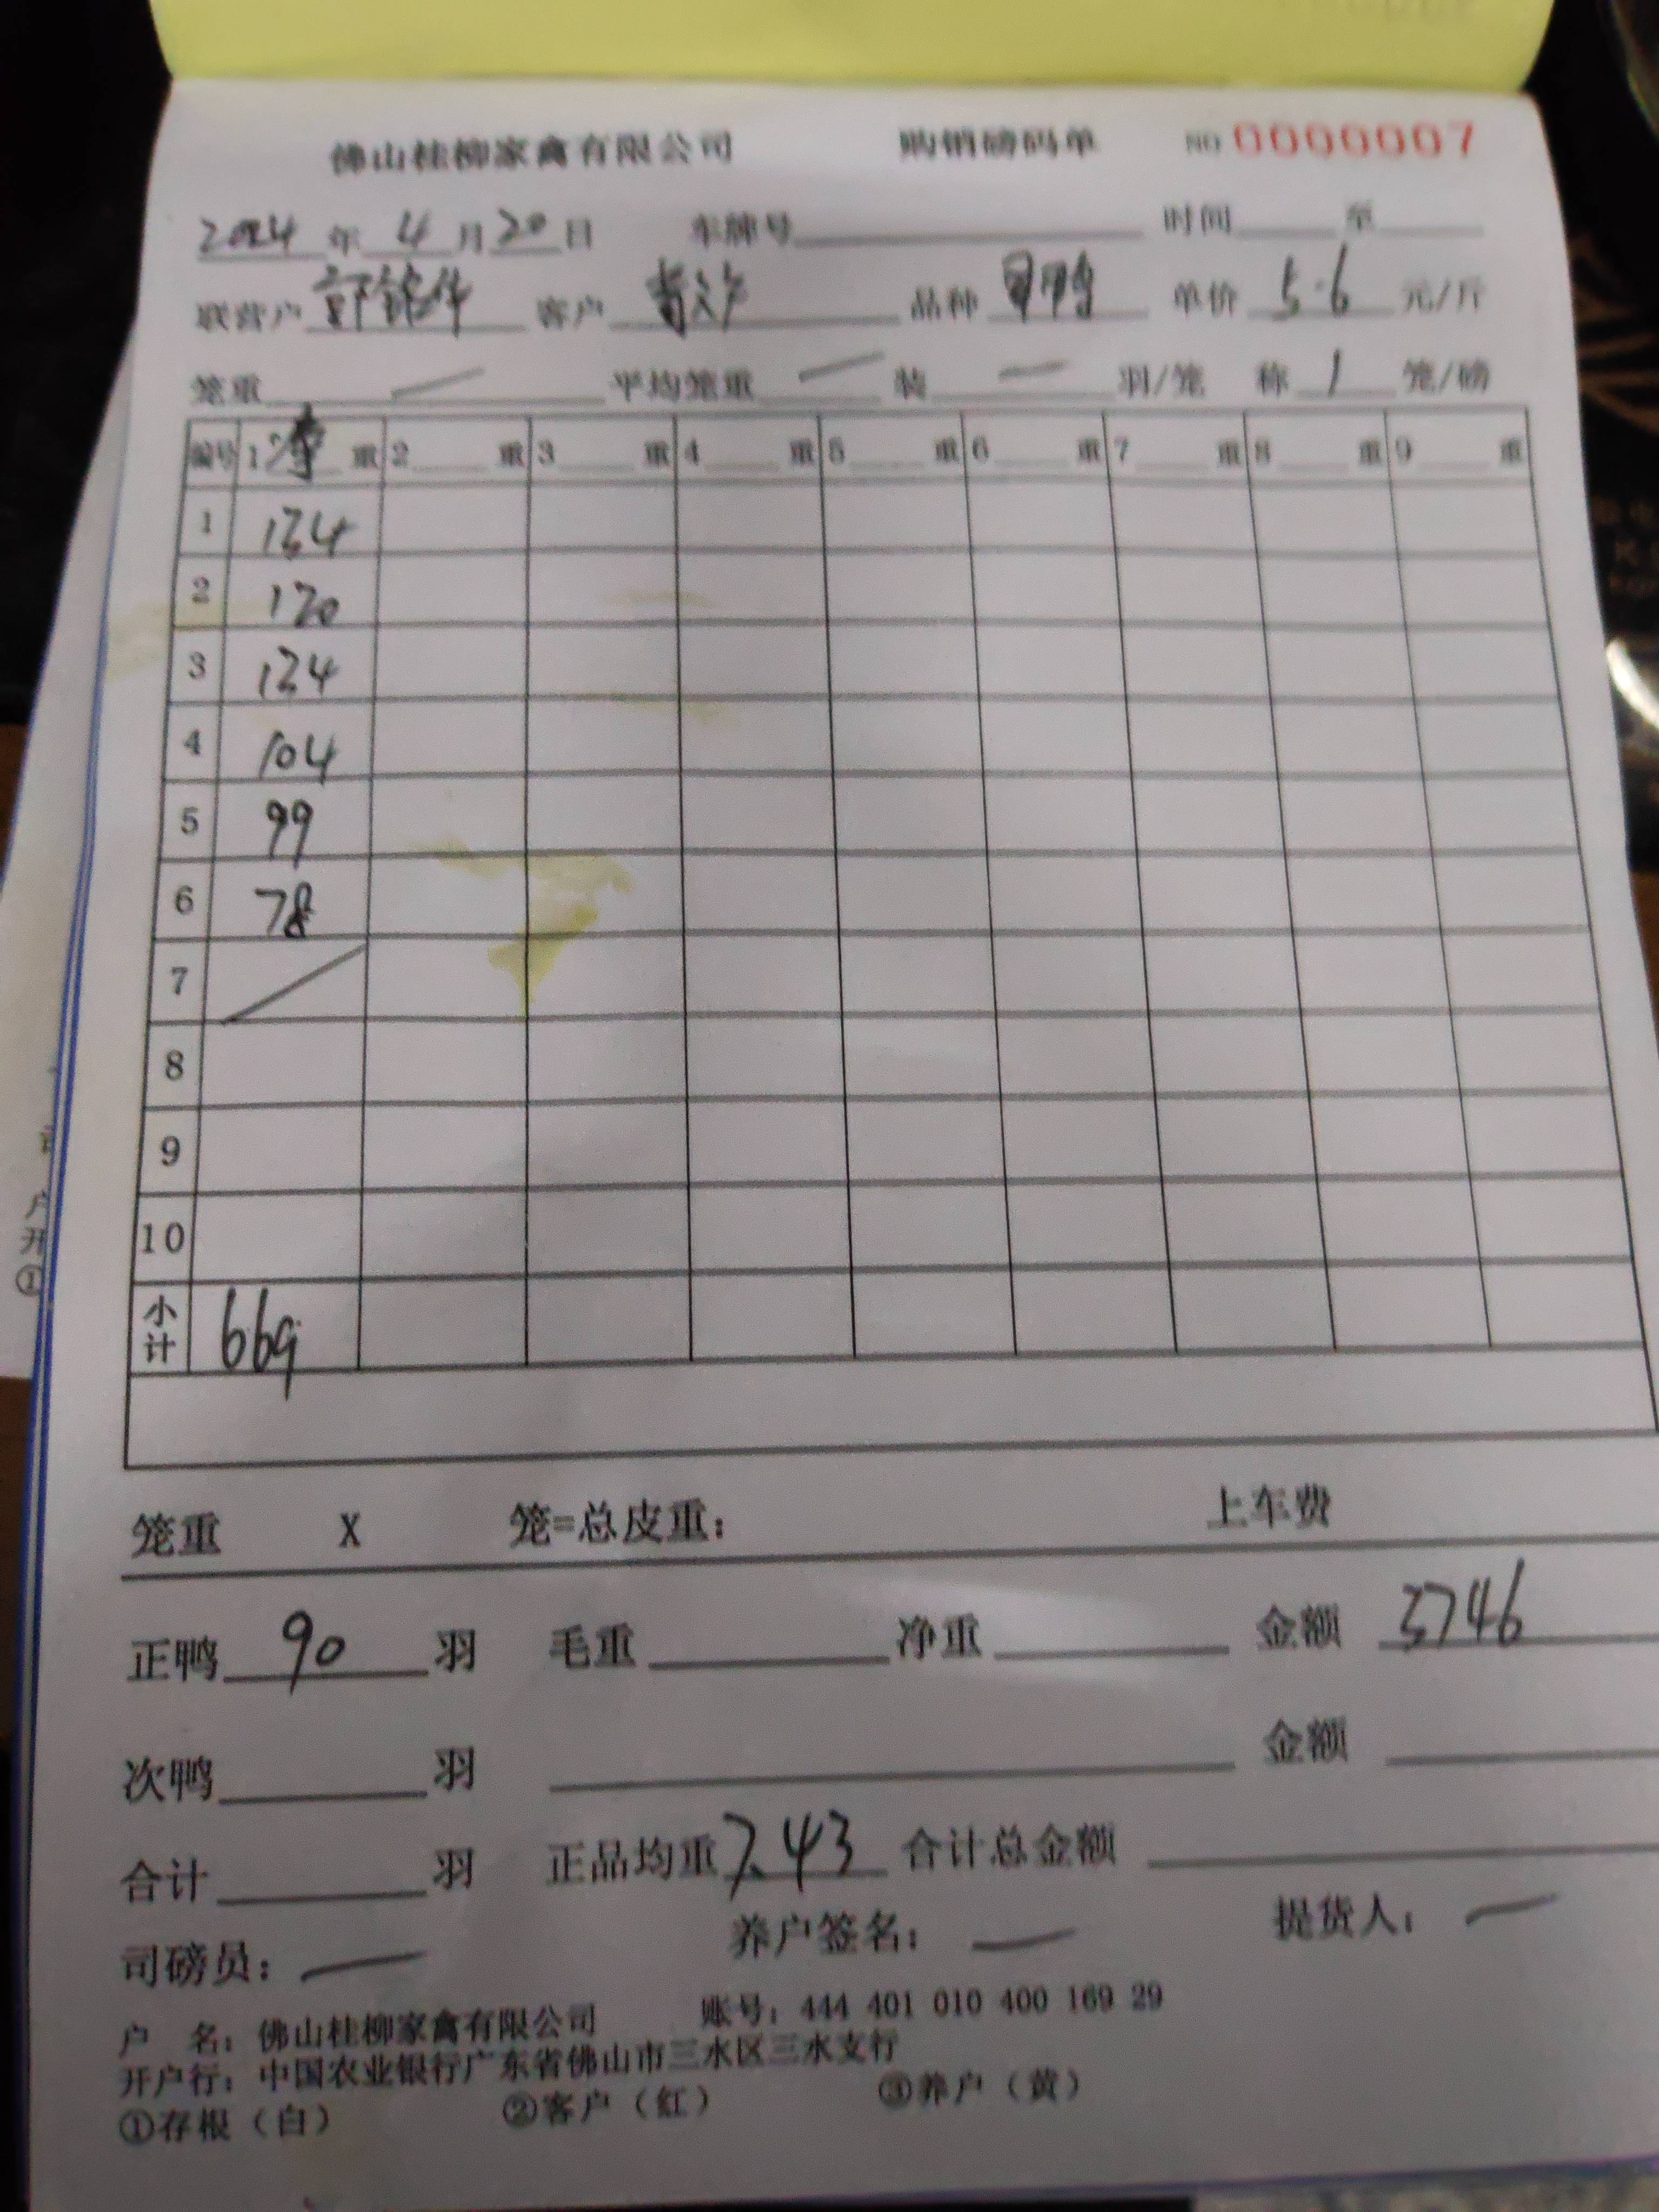 佛山桂柳家禽有限公司 购销磅码单 NO 0000007
2024 年 4 月 20 日 车牌号 时间 至
联营户 客户 品种 单价 5.6 元/斤
笼重 — 平均笼重 — 装 — 羽/笼 称 1 笼/磅
编号 1 净 重 2 重 3 重 4 重 5 重 6 重 7 重 8 重 9 重
1 134
2 120
3 134
4 104
5 99
6 78
7
8
9
10
小计 669
笼重 X 笼=总皮重: 上车费
正鸭 90 羽 毛重 净重 金额 3746
次鸭 羽 金额
合计 羽 正品均重 7.43 合计总金额
司磅员: — 养户签名: — 提货人: —
户 名: 佛山桂柳家禽有限公司 账号: 444 401 010 400 169 29
开户行: 中国农业银行广东省佛山市三水区三水支行
①存根(白) ②客户(红) ③养户(黄)